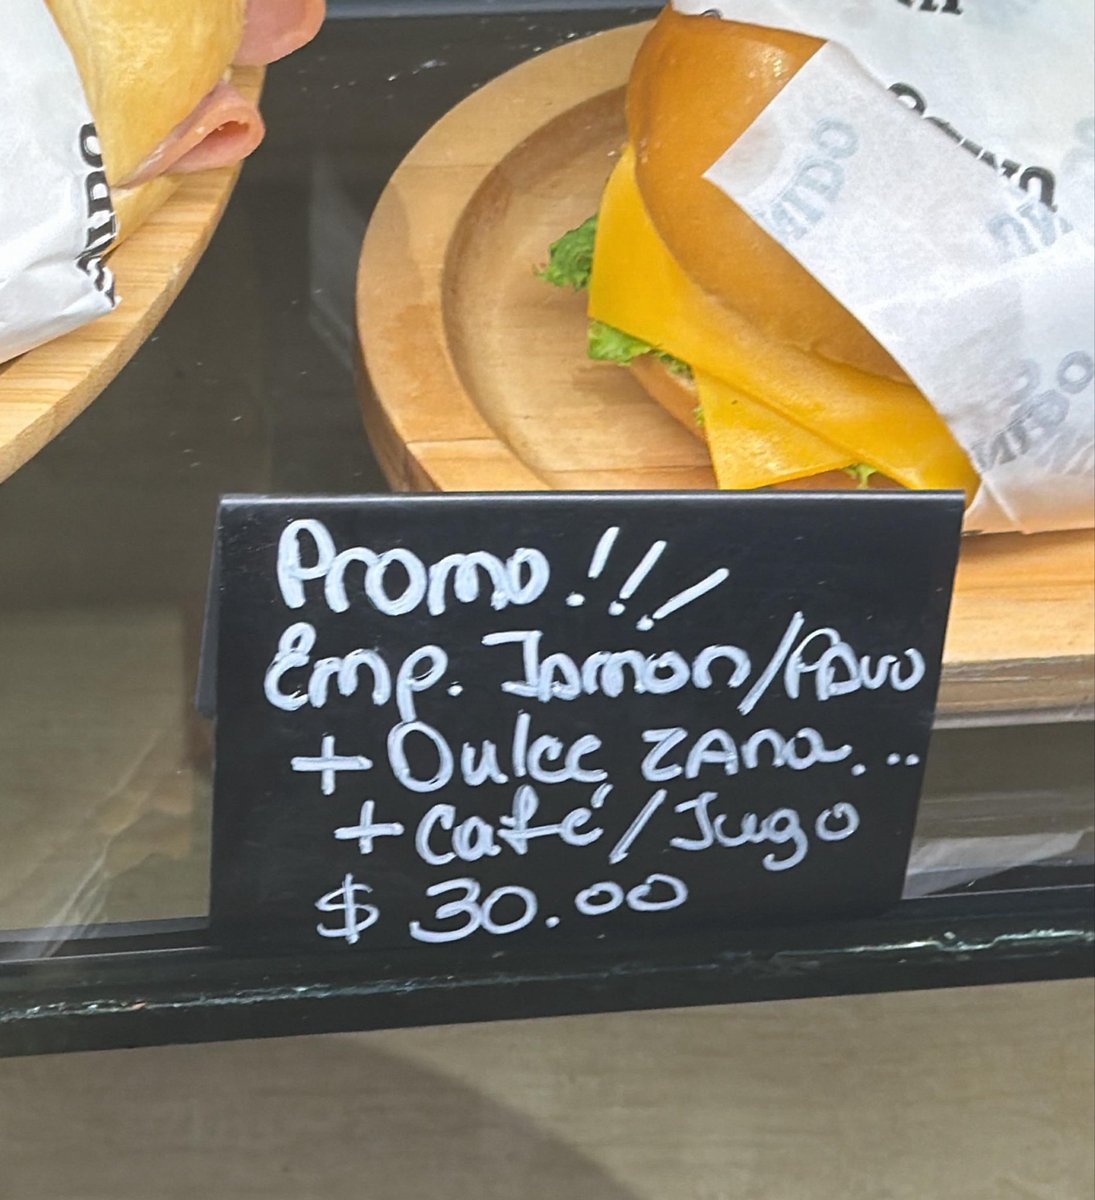 Promo!!!
Emp. Jamon/Pavo
+ Dulce Zana...
+ Café/Jugo
$ 30.00